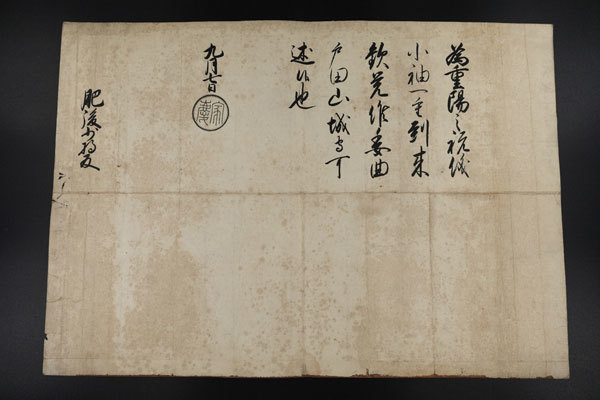 為重陽之祝儀
小袖一重到来
歓覚候委曲
戸田山城守可
述候也
九月七日
家慶
肥後少将